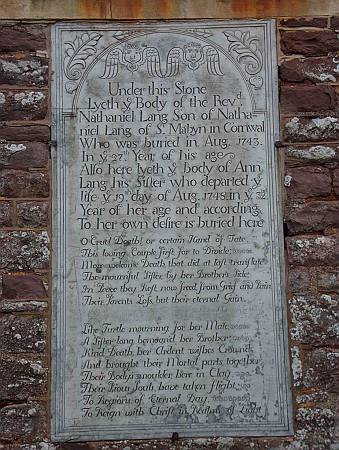 Under this Stone
Lyeth yᵉ Body of the Revᵈ.
Nathaniel Lang Son of Natha-
niel Lang of S. Mabyn in Cornwal
Who was buried in Aug. 1743.
In yᵉ 27ᵗʰ Year of his age
Also here lyeth yᵉ body of Ann
Lang his Sister who departed yᵉ
life yᵉ 19ᵗʰ day of Aug. 1748. in yᵉ 32ᵈ
Year of her age and according
To her own desire is buried here
O Cruel Death! or certain Hand of Fate,
This loving Couple first for to Divide;
More welcome Death that did at last translate
The mournful Sister by her Brothers Side;
In Peace they Rest now freed from Grief and Pain
Their Parents Loss, but their eternal Gain.
Like Turtle mourning for her Mate
A Sister long bemoan'd her Brother;
Kind Death her Ardent wishes Crown'd
And brought their Mortal parts together
Their Bodys moulder here in Clay
Their Pious Souls have taken flight
To Regions of Eternal Day
To Reign with Christ in Realms of Light